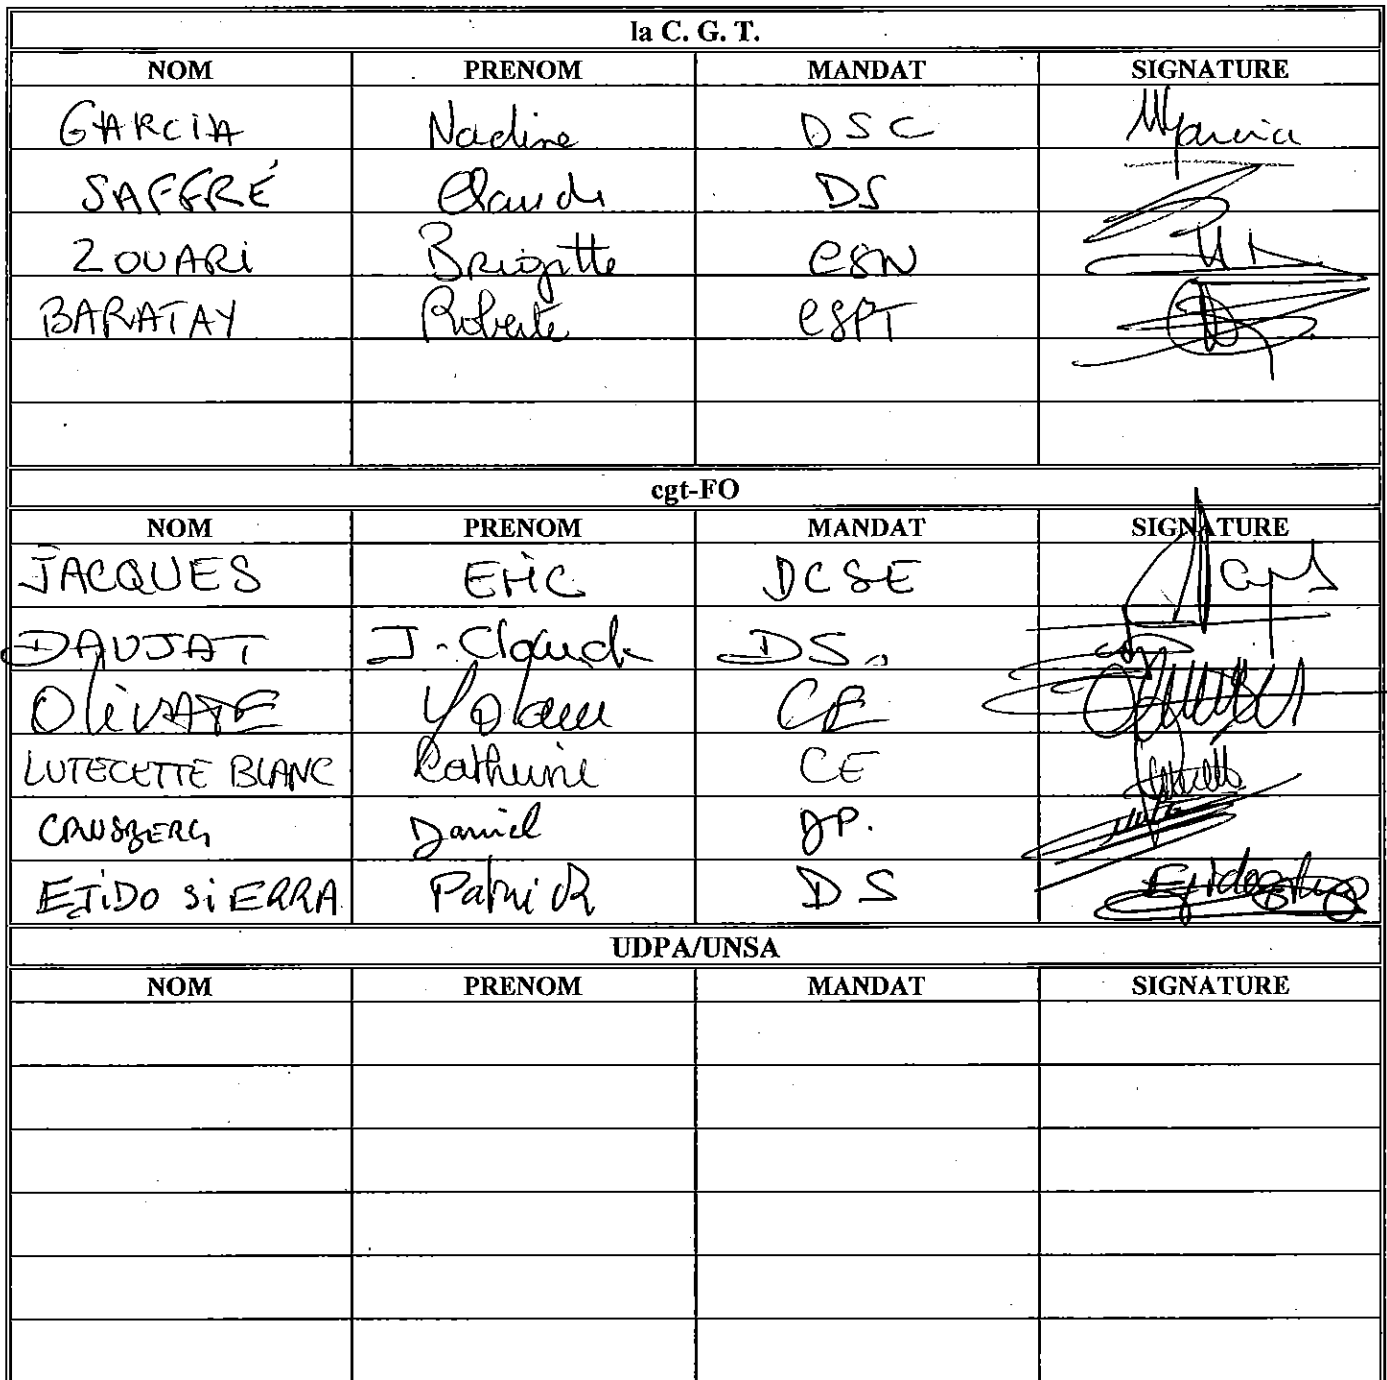 la C. G. T.
NOM PRENOM MANDAT SIGNATURE
GARCIA Nadine DSC
SAFFRÉ Claude DS
ZOUARi Brigitte CSN
BARATAY Roberte CSPT
cgt-FO
NOM PRENOM MANDAT SIGNATURE
JACQUES ERIC DCSE
DAUJAT J-Claude DS.
Yolane CE
LUTECETTE BLANC Catherine CE
Daniel DP.
EJiDO SiERRA Patrick DS
UDPA/UNSA
NOM PRENOM MANDAT SIGNATURE